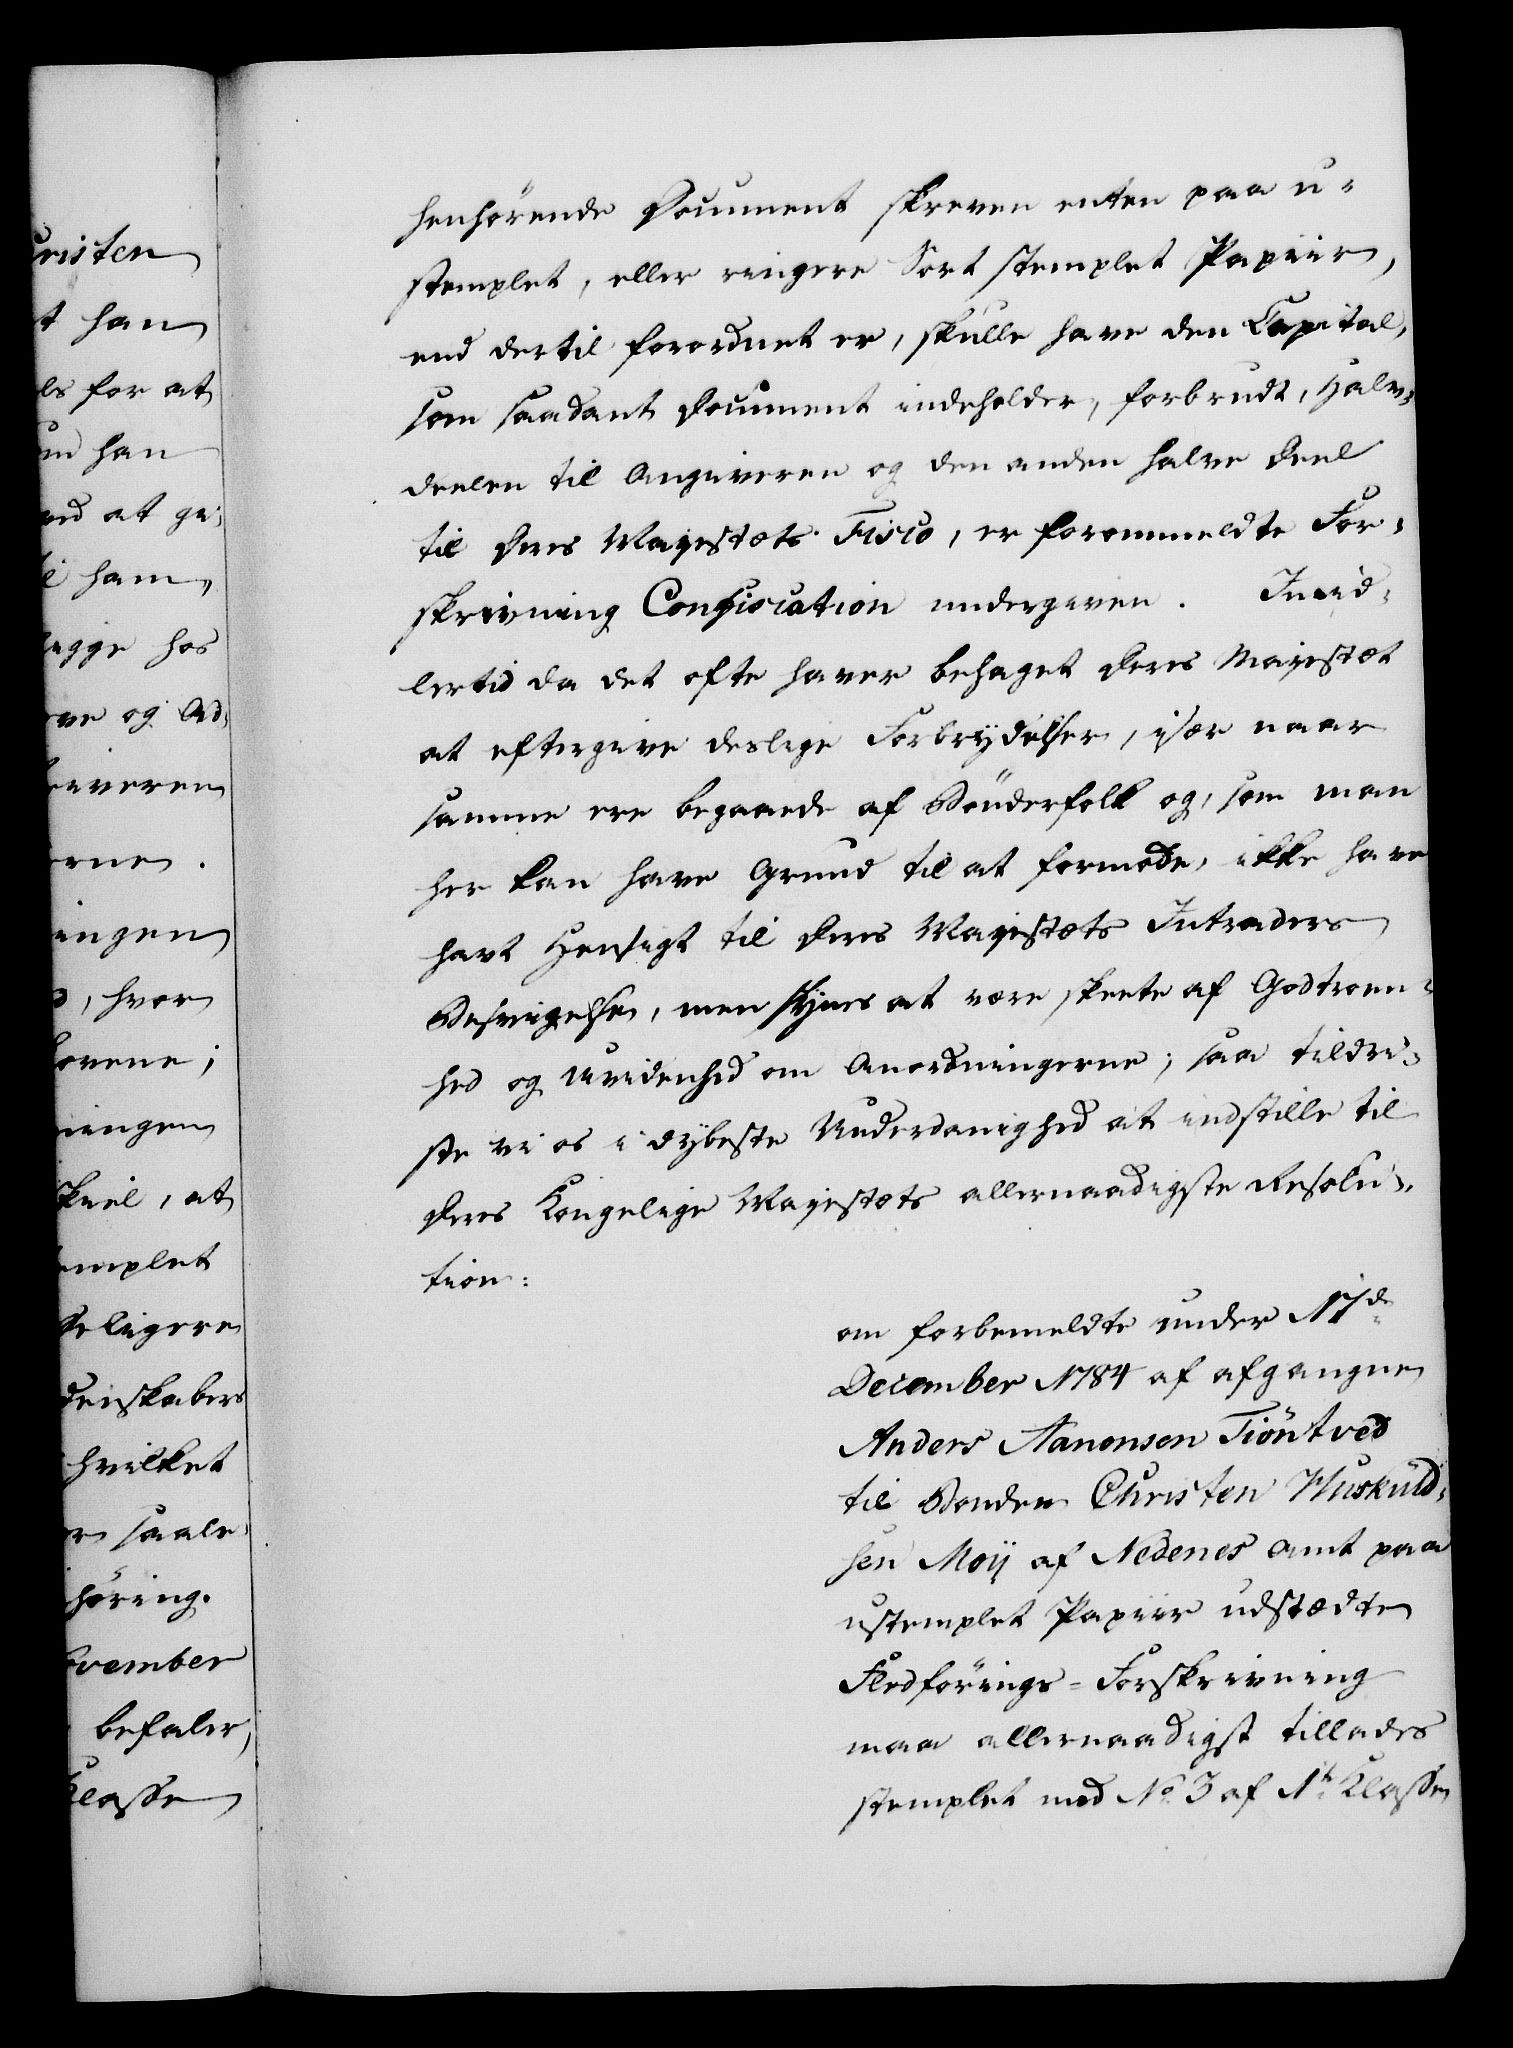 uristen
t han
ls for at
en han
ed at gi-
l ham,
ligge hos
ve og Ad-
riveren
rne.
ingen
d, hvor
ovene;
ningen
Skiel, at
emplet
seligere
denskabers
hvilket
er saale-
höring.
ovember
befaler,
Classe
henhörende Document skreven enten paa u-
stemplet, eller ringere Sort stemplet Papiir,
end dertil forordnet er, skulle have den Capital,
som saadant Document indeholder, forbrudt, Halv-
deelen til Angiveren og den anden halve Deel
til Deres Majestæts Fisco, er forommeldte For-
skrivning Confiscation undergiven. Imid-
lertid da det ofte haver behaget Deres Majestæt
at eftergive deslige Forbrydelser, især naar
samme ere begaaede af Bönderfolk og, som man
her kan have Grund til at formode, ikke have
havt Hensigt til Deres Majestæts Intraders
Besvigelse, men synes at være skeete af Godtroen-
hed og Uvidenhed om Anordningerne; saa tildri-
ste vi os i dybeste Underdanighed at indstille til
Deres Kongelige Majestæts allernaadigste Resolu-
tion:
om forbemeldte under 17de
December 1784 af afgangne
Anders Aanonsen Tiöntved
til Bonden Christen Huskuld-
sen Moÿ af Nedenes Amt paa
ustemplet Papiir udstædte
Fledförings-Forskrivning
maa allernaadigst tillades
stemplet med No 3 af 1te Classe